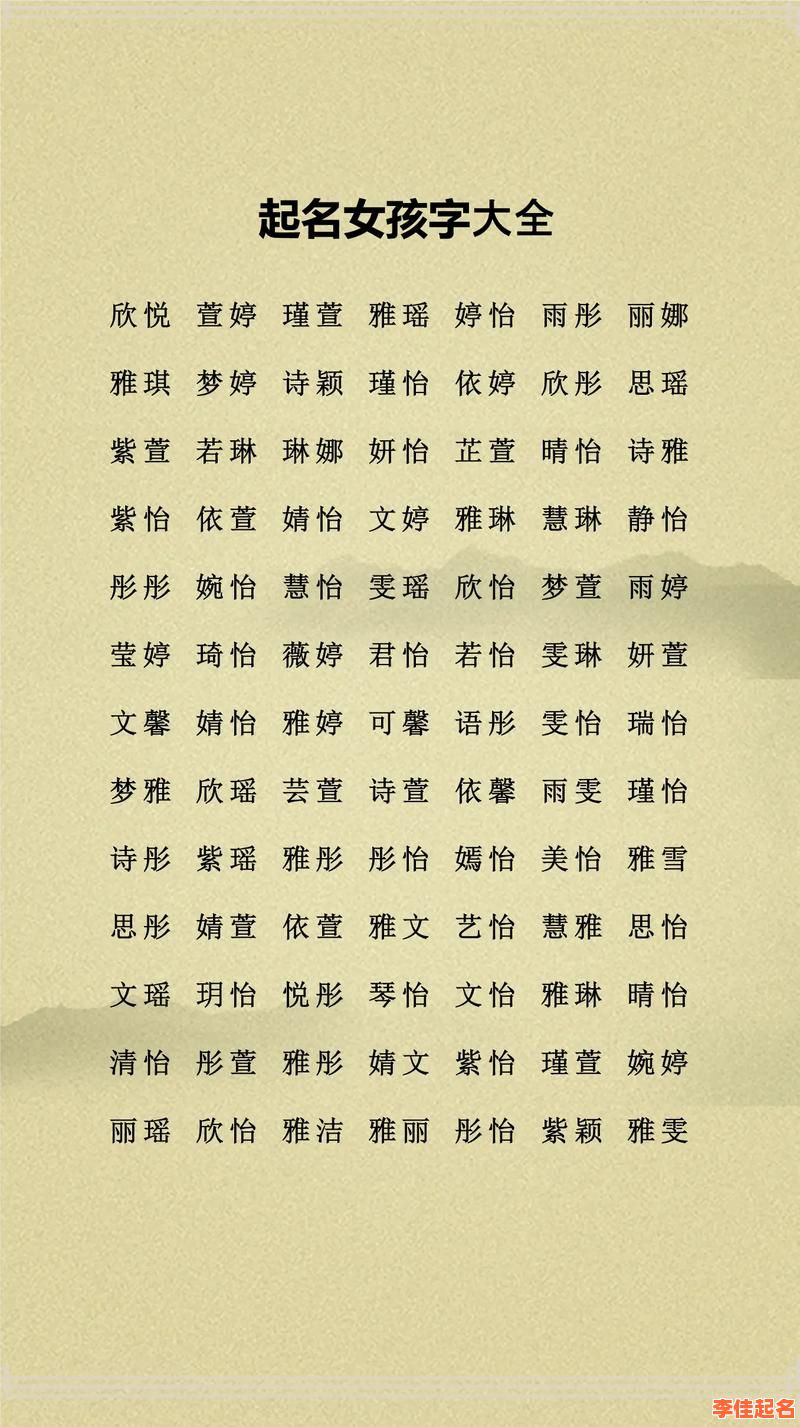 起名女孩字大全
欣悦 萱婷 瑾萱 雅瑶 婷怡 雨彤 丽娜
雅琪 梦婷 诗颖 瑾怡 依婷 欣彤 思瑶
紫萱 若琳 琳娜 妍怡 芷萱 晴怡 诗雅
紫怡 依萱 婧怡 文婷 雅琳 慧琳 静怡
彤彤 婉怡 慧怡 雯瑶 欣怡 梦萱 雨婷
莹婷 琦怡 薇婷 君怡 若怡 雯琳 妍萱
文馨 婧怡 雅婷 可馨 语彤 雯怡 瑞怡
梦雅 欣瑶 芸萱 诗萱 依馨 雨雯 瑾怡
诗彤 紫瑶 雅彤 彤怡 嫣怡 美怡 雅雪
思彤 婧萱 依萱 雅文 艺怡 慧雅 思怡
文瑶 玥怡 悦彤 琴怡 文怡 雅琳 晴怡
清怡 彤萱 雅彤 婧文 紫怡 瑾萱 婉婷
丽瑶 欣怡 雅洁 雅丽 彤怡 紫颖 雅雯
李佳起名